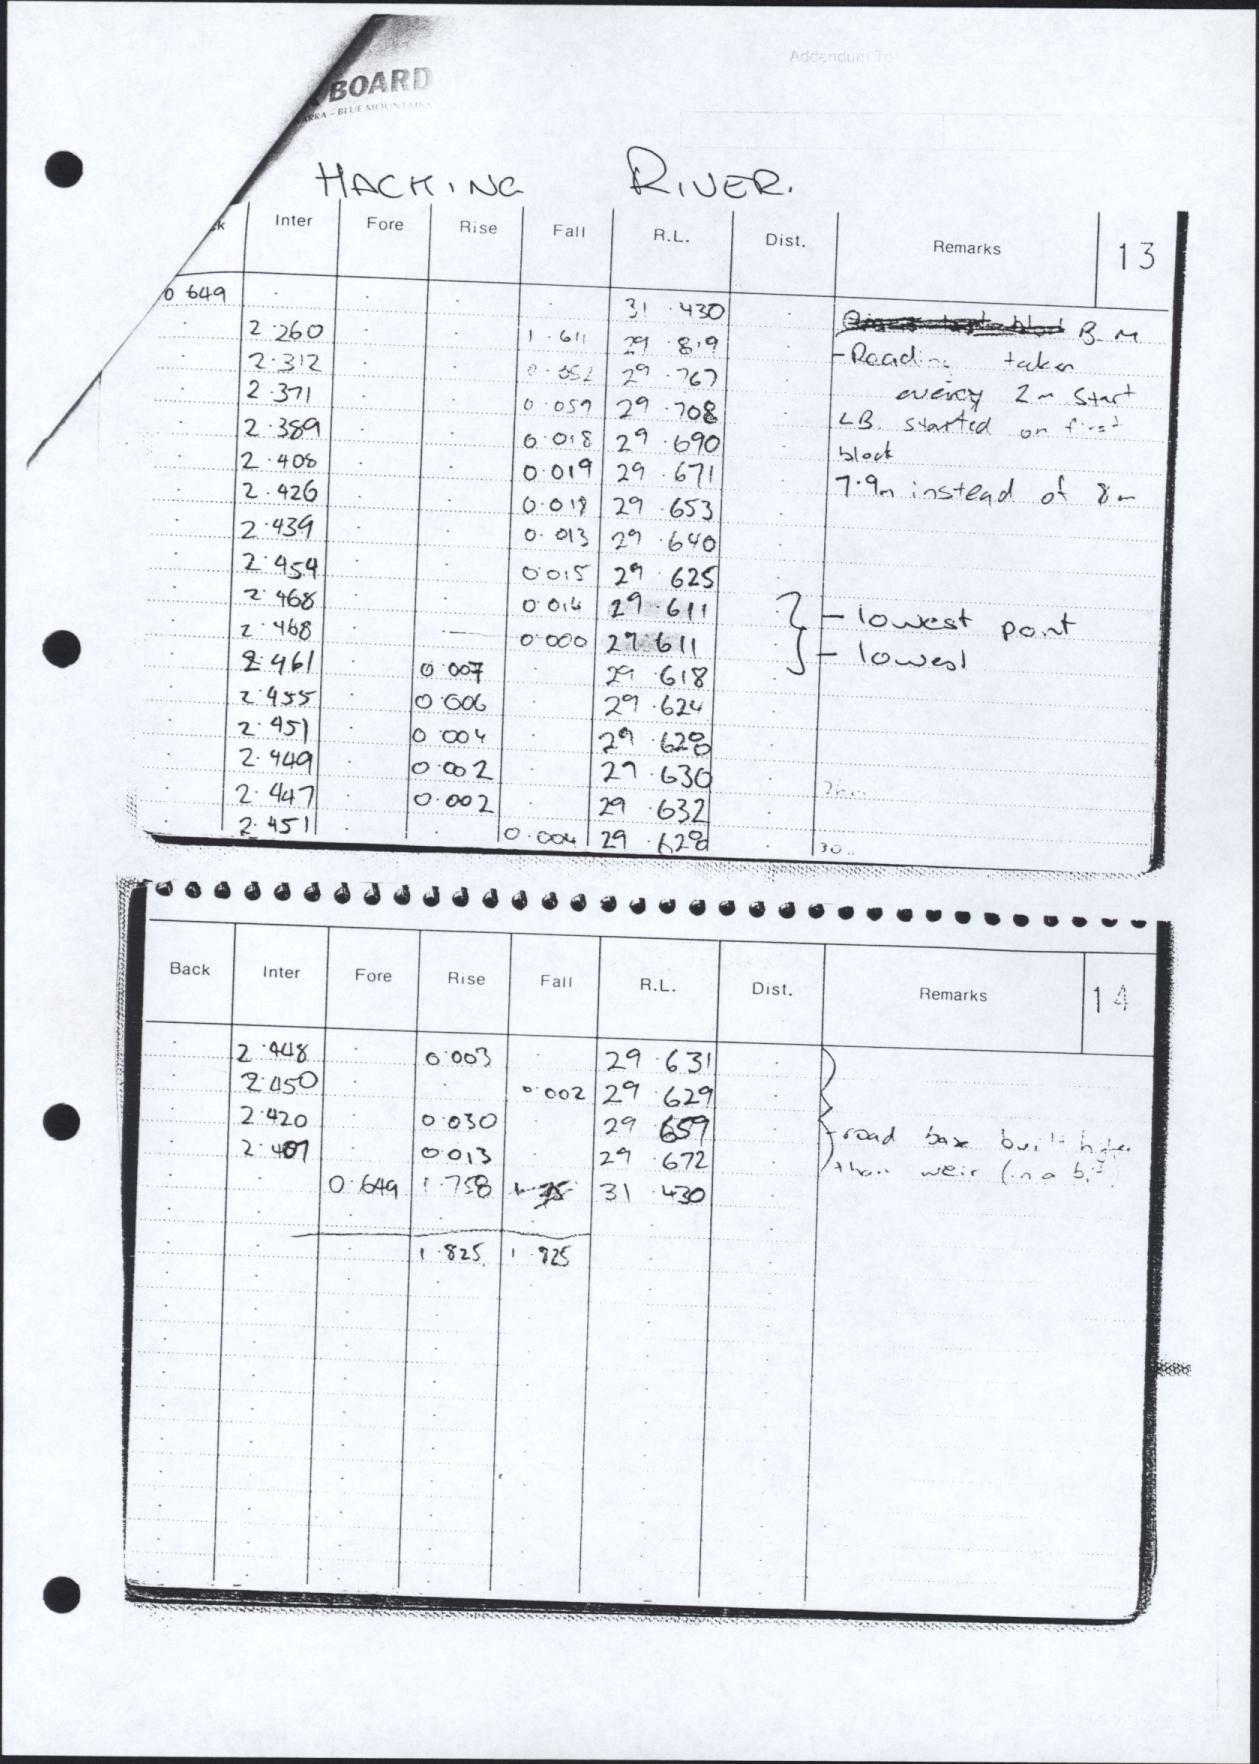 Addendum To
BOARD
ARRA – BLUE MOUNTAINS
HACKING RIVER.
k Inter Fore Rise Fall R.L. Dist. Remarks 13
0 649 31 .430 B.M
2.260 1.611 29 .819 - Reading taken
2.312 0.052 29 .767 every 2m start
2.371 0.059 29 .708 LB. started on first
2.389 0.018 29 .690 block
2.408 0.019 29 .671 7.9m instead of 8m
2.426 0.018 29 .653
2.439 0.013 29 .640
2.454 0.015 29 .625
2.468 0.014 29 .611 - lowest point
2.468 0.000 29 .611 - lowest
2.461 0.007 29 .618
2.455 0.006 29 .624
2.451 0.004 29 .628
2.449 0.002 29 .630
2.447 0.002 29 .632
2.451 0.004 29 .628 30
Back Inter Fore Rise Fall R.L. Dist. Remarks 14
2.448 0.003 29 .631
2.450 0.002 29 .629
2.420 0.030 29 .659 - road base built higher
2.407 0.013 29 .672 than weir (in a bit
0.649 1.758 31 .430
1.825 1.825